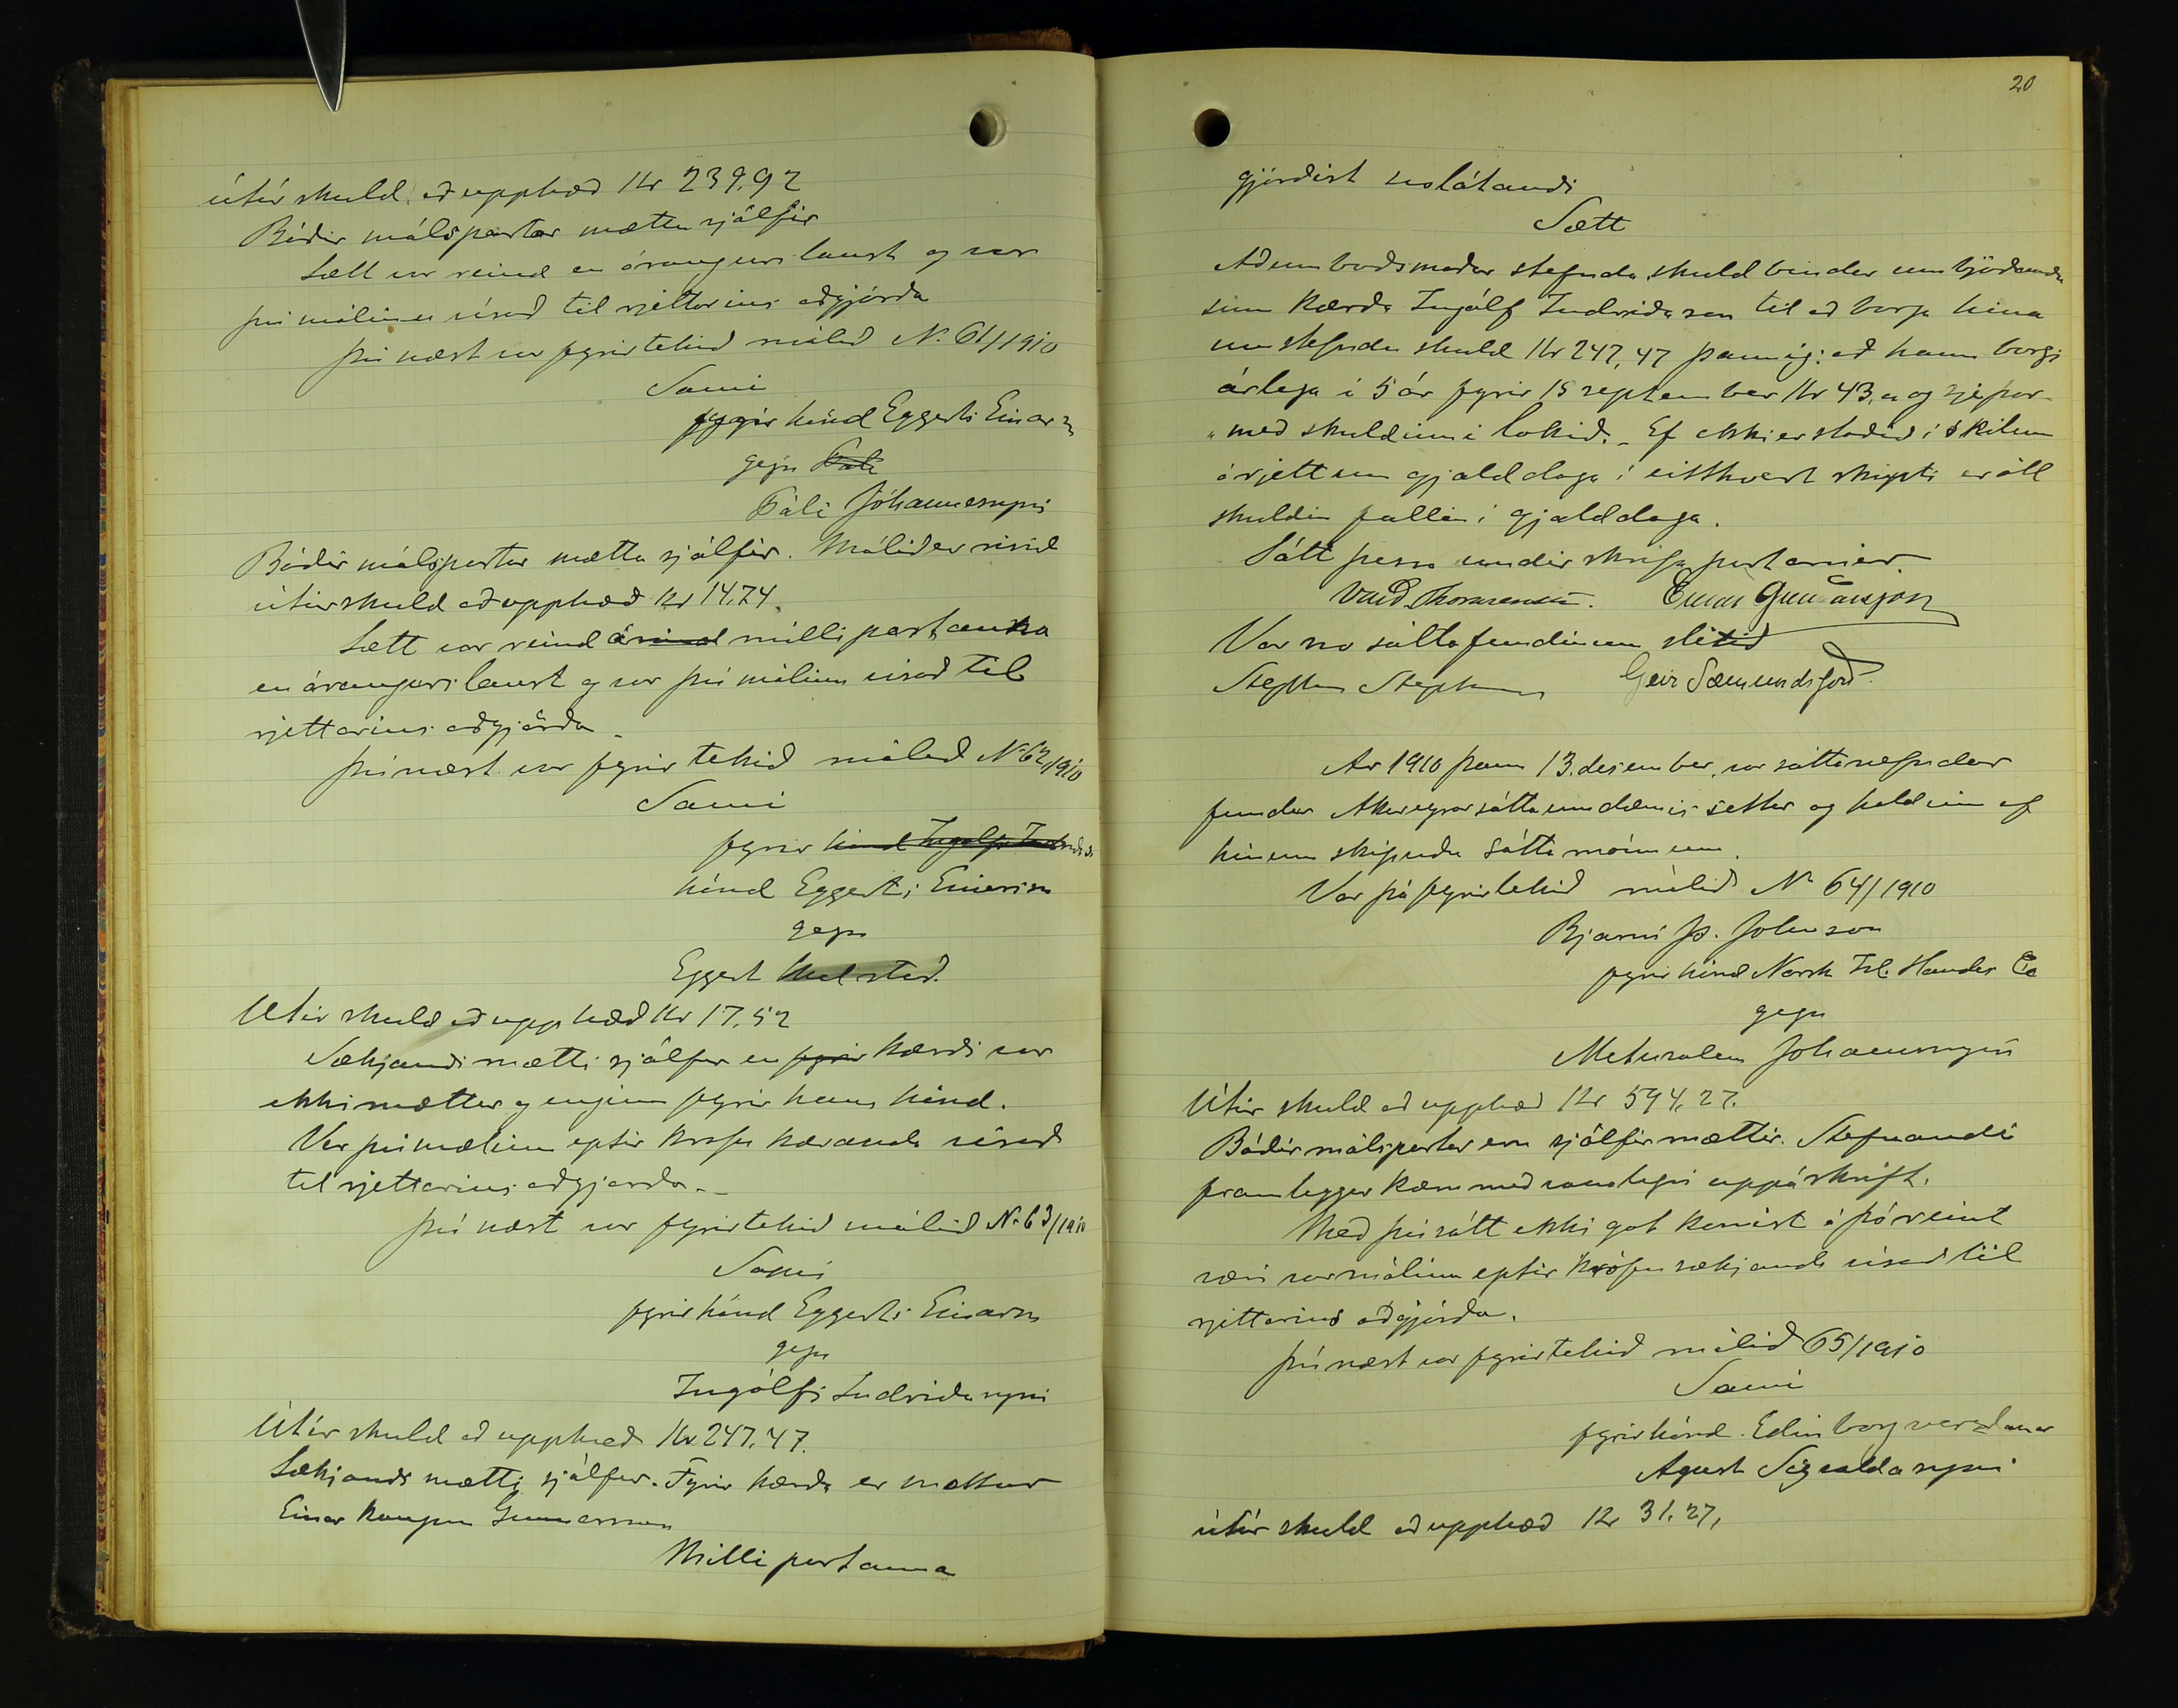 útúr skuld að upphæð Kr 239,92
Báðir málspartar mættu sjálfir
Sætt var reind en árangurslaust og var
því málinu vísað til rjettarins aðgjörða
Því næst var fyrirtekið málið N. 61/1910
Sami
fyrir hönd Eggerts Einarss
gegn Páli
Páli Jóhannessyni
Báðir málspartar mættu sjálfir. Málið er risið
útúr skuld að upphæð Kr 14,74.
Sætt var reind milli partanna
en árangurslaust og var því málinu vísað til
rjettarins aðgjörða
Því næst var fyrirtekið málið No 62/1910
Sami
fyrir hönd Ingolfs Indriða
hönd Eggerts Einarss
gegn
Eggert Melsteð.
Útúr skuld að upphæð Kr 17,52
Sækjandi mætti sjálfur en fyrir kærði var
ekki mættur og enginn fyrir hans hönd.
Var því málinu eptir kröfu kæranda vísað
til rjettarins aðgjörða.
Því næst var fyrirtekið málið No 63/1910
Sami
fyrir hönd Eggerts Einarss
gegn
Ingólfi Indriðasyni
Útúr skuld að upphæð Kr 247,47.
Sækjandi mætti sjálfur. Fyrir kærða er mættur
Einar Gunnarsson
Milli partanna
20
gjörðist svolátandi
Sætt
Að umboðsmaður stefnda skuldbindur umbjóðanda
sinn kærða Ingólf Indriðason til að borga hina
umstefndu skuld Kr 247,47 þannig: að hann borgi
árlega í 5 ár fyrir 15 september Kr 43 og sje þar
með skuldinni lokið. Ef ekki er staðið í skilum
á rjettum gjalddaga í eitthvert skipti er öll
skuldin fallin í gjalddaga.
Sátt þessa undirskrifa partarnir.
Vald. Thorarensen. Einar Gunnarsson
Var svo sáttafundinum slitið
Stephan Stephensen Geir Sæmundsson
Ár 1910 þann 13. desember, var sáttanefndar
fundur Akureyrar sáttaumdæmis settur og haldinn af
hinum skipuðu sáttamönnum.
Var þá fyrirtekið málið No 64/1910
Bjarni Þ. Johnson
fyrir hönd Norsk Isl. Handes Co
gegn
Metusalem Johannssyni
Útúr skuld að upphæð Kr 594,27.
Báðir málspartar eru sjálfir mættir. Stefnandi
framleggur kæru með vanalegri uppáskrift.
Með því sátt ekki gat komist á þó reint
væri var málinu eptir kröfu sækjanda vísað til
rjettarins aðgjörða.
Því næst var fyrirtekið málið 65/1910
Sami
fyrir hönd Edinborgarverzlunar
Agust Sigvaldasyni
útúr skuld að upphæð Kr 31,27,